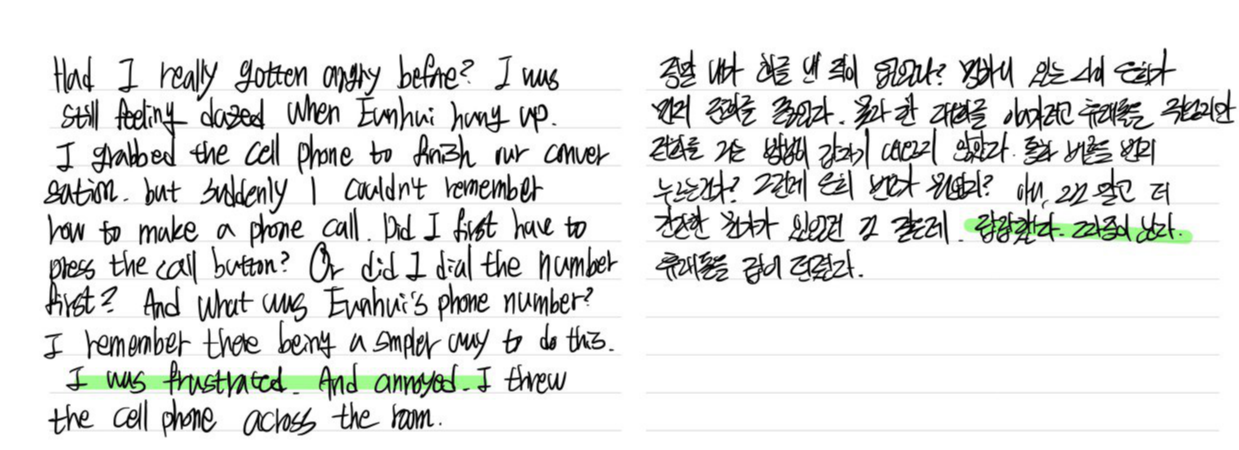 Had I really gotten angry before? I was
still feeling dazed when Eunhui hung up.
I grabbed the cell phone to finish our conver
sation. but suddenly I couldn't remember
how to make a phone call. Did I first have to
press the call button? Or did I dial the number
first? And what was Eunhui's phone number?
I remember there being a simpler way to do this.
I was frustrated. And annoyed. I threw
the cell phone across the room.
정말 내가 화를 낸 적이 있었나? 멍하니 있는 사이 은희가
먼저 전화를 끊었다. 못다 한 대화를 이어가려고 휴대폰을
전화를 거는 방법이 갑자기 생각나지 않았다. 통화 버튼을 먼저
누르는건가? 그런데 은희 번호가 뭐였지? 아니, 그런 말고 더
간단한 뭔가가 있었던 것 같은데. 답답했다. 짜증이 났다.
휴대폰을 집어 던졌다.